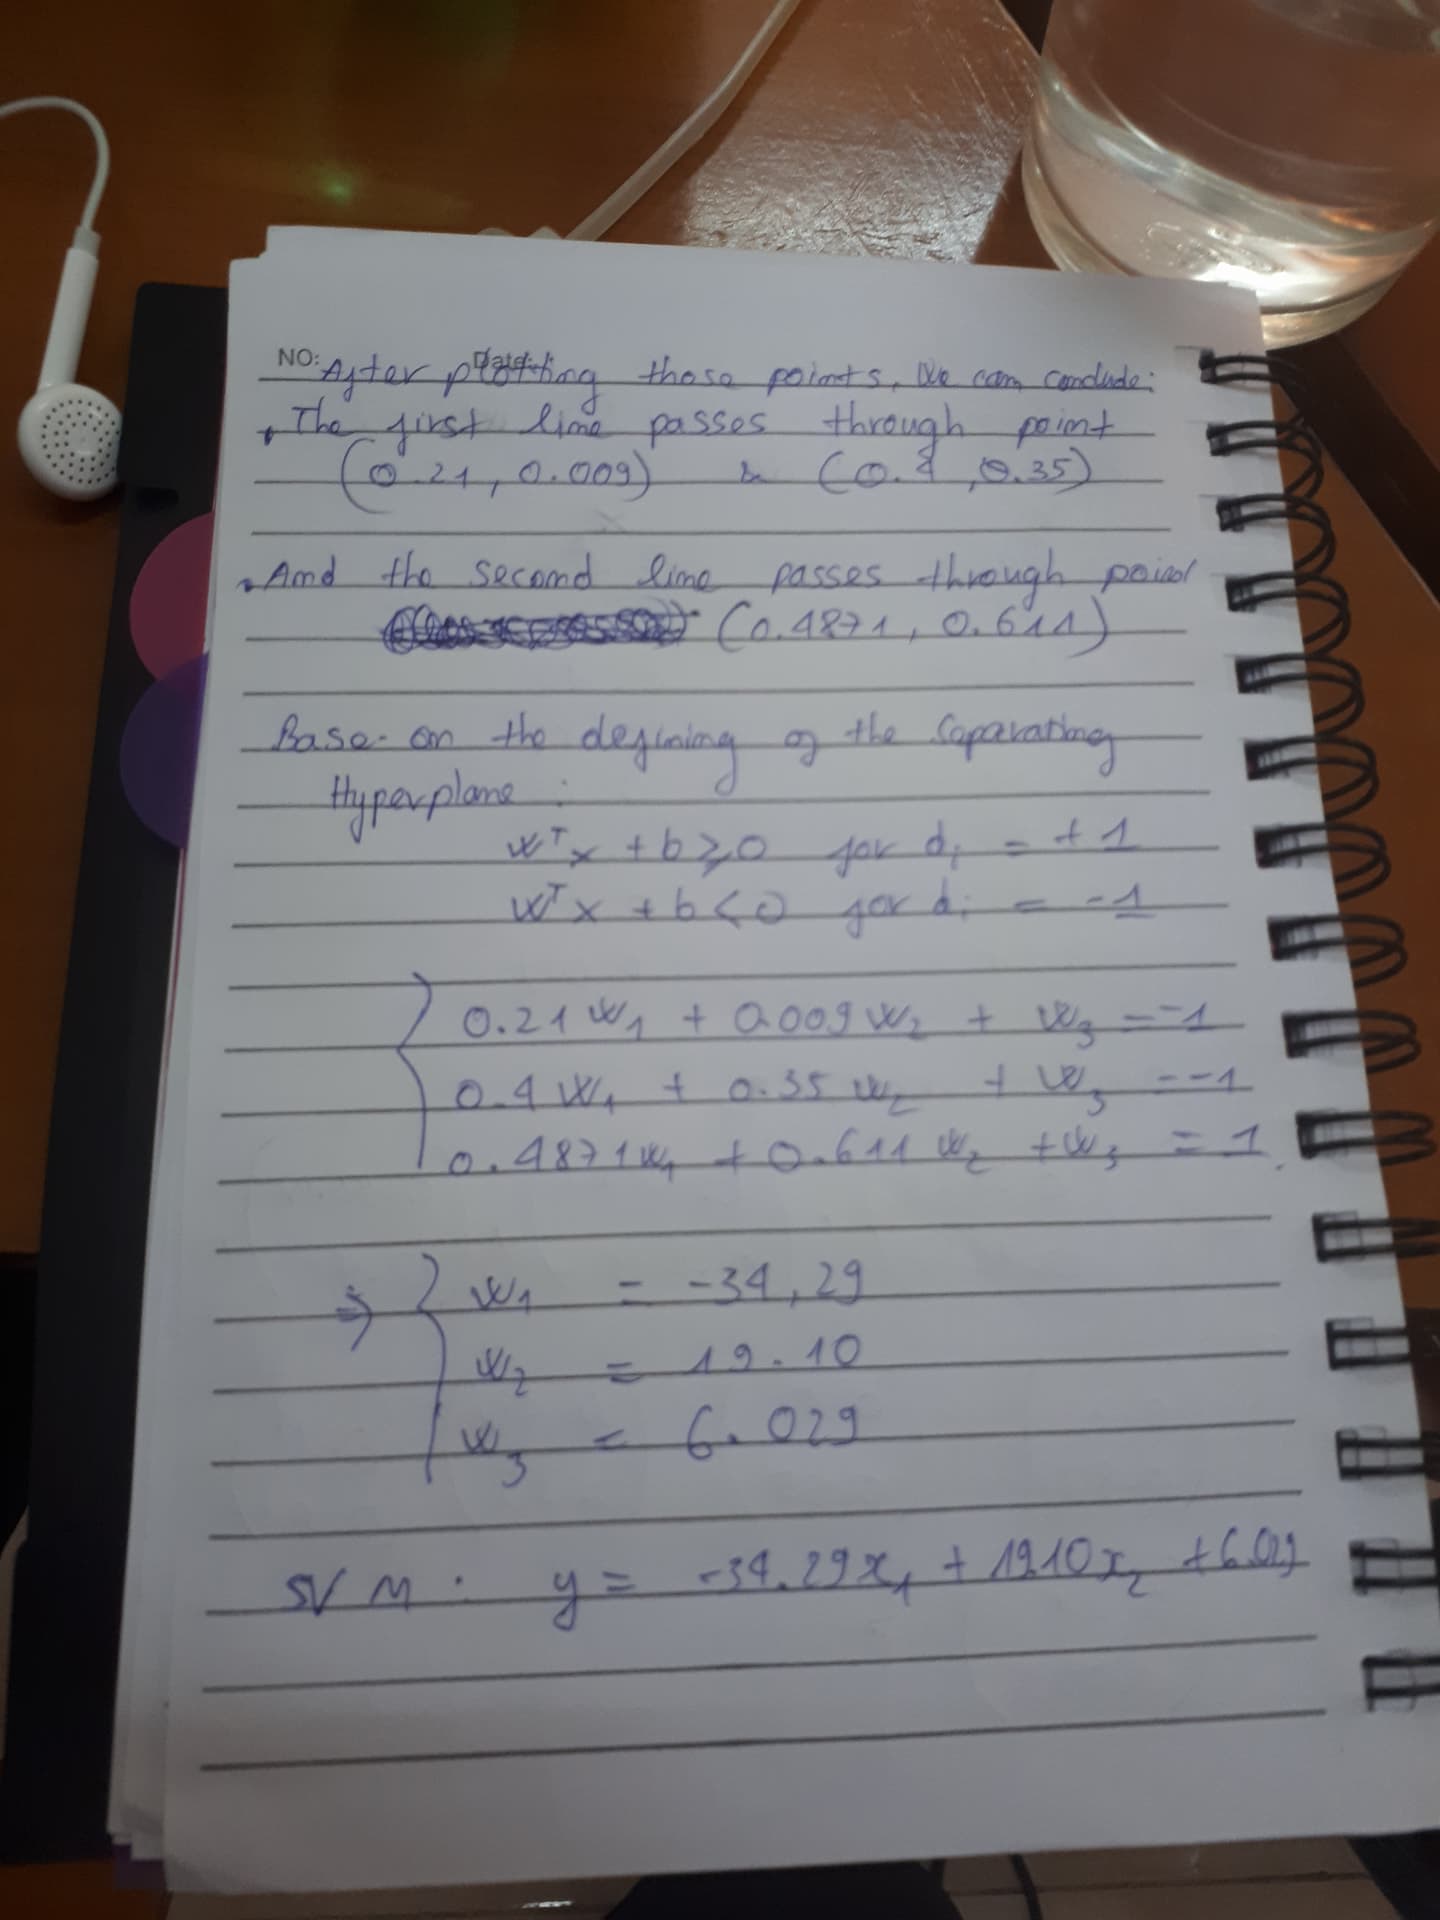 NO: Date:
After plotting those points, We can conclude:
The first line passes through point
(0.21, 0.009) & (0.4, 0.35)
And the second line passes through point
(0.4871, 0.611)
Base on the defining of the Separating
Hyperplane :
wᵀx + b ≥ 0 for dᵢ = +1
wᵀx + b < 0 for dᵢ = -1
0.21 w₁ + 0.009 w₂ + w₃ = -1
0.4 w₁ + 0.35 w₂ + w₃ = -1
0.4871 w₁ + 0.611 w₂ + w₃ = 1
⇒ { w₁ = -34,29
w₂ = 19.10
w₃ = 6.029
SVM : y = -34.29x₁ + 19.10x₂ + 6.029